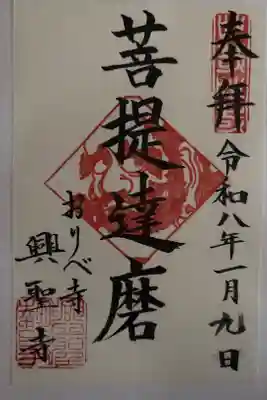 奉拝
令和八年一月九日
菩提達磨
おりべ寺
興聖寺